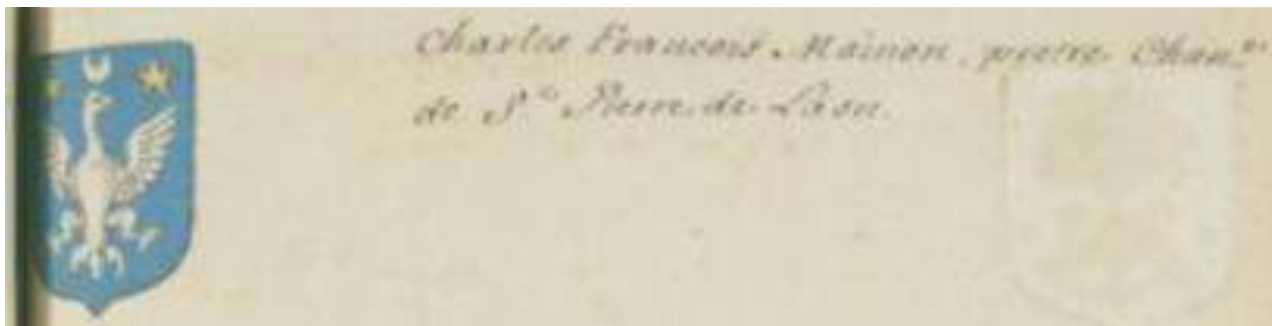 Charles François Mainon, prêtre Chan.ne
de S.t Pierre de Laon.